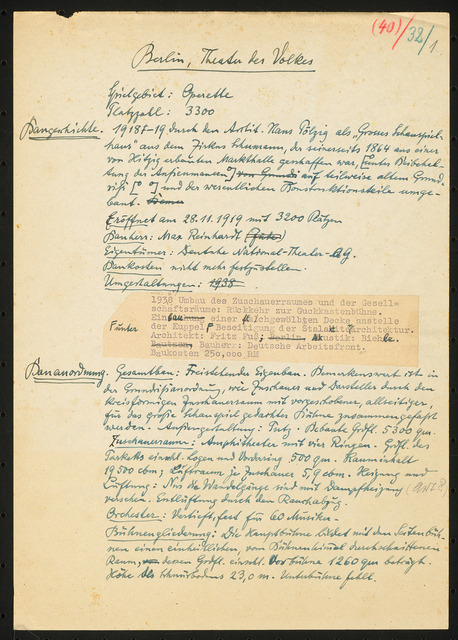 (40)/32/1
Berlin, Theater des Volkes
Spielgebiet: Operette
Platzzahl: 3300
Baugeschichte. 1918-19 durch den Archit. Hans Pölzig als „Grosses Schauspiel-
haus" aus dem Zirkus Schumann, der seinerseits 1864 aus einer
von Hitzig erbauten Markthalle geschaffen war, unter Beibehal-
tung der Aussenmauern auf teilweise altem Grund-
riss und der wesentlichen Konstruktionsteile umge-
baut.
Eröffnet am 28.11.1919 mit 3200 Plätzen
Bauherr: Max Reinhardt
Eigentümer: Deutsche National-Theater-AG.
Baukosten nicht mehr festzustellen.
Umgestaltungen: 1938
1938 Umbau des Zuschauerraumes und der Gesell=
schaftsräume: Rückkehr zur Guckkastenbühne.
Einbau einer flachgewölbten Decke anstelle
der Kuppel, Beseitigung der Stalaktitarchitektur.
Architekt: Fritz Fuß, Berlin, Akustik: Biehle.
Bauherr: Deutsche Arbeitsfront.
Baukosten 250,000 RM
Bauanordnung. Gesamtbau: Freistehender Eigenbau. Bemerkenswert ist
der Grundrissanordnung, wie Zuschauer und Darsteller durch den
kreisförmigen Zuschauerraum mit vorgeschobener, allseitiger,
für das große Schauspiel gedachter Bühne zusammengefaßt
werden. Aussengestaltung: Putz. Bebaute Grdfl. 5300 qm.
Zuschauerraum: Amphitheater mit vier Ringen. Grdfl. des
Parketts einschl. Logen und Vorderring 500 qm. Rauminhalt
19500 cbm; Luftraum je Zuschauer 5,9 cbm. Heizung und
Lüftung: Nur die Wandelgänge sind mit Dampfheizung
versehen. Entlüftung durch den Rauchabzug.
Orchester: Vertieft, fest für 60 Musiker.
Bühnengliederung: Die Hauptbühne bildet mit den Seitenbüh-
nen einen einheitlichen, vom Bühnenhimmel durchschnittenen
Raum, deren Grdfl. einschl. Vorbühne 1260 qm beträgt.
Höhe des Schnürbodens 23,0 m. Unterbühne fehlt.